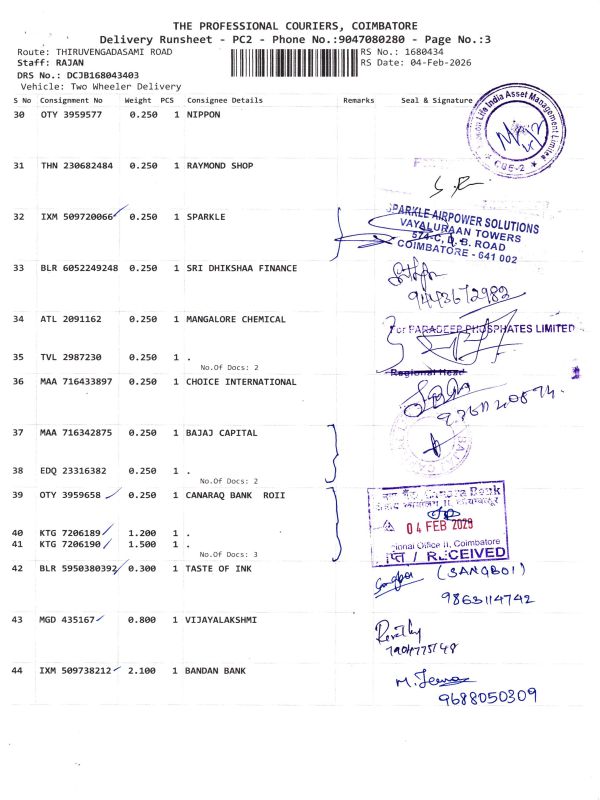 THE PROFESSIONAL COURIERS, COIMBATORE
Delivery Runsheet - PC2 - Phone No.:9047080280 - Page No.:3
Route: THIRUVENGADASAMI ROAD
RS No.: 1680434
Staff: RAJAN
RS Date: 04-Feb-2026
DRS No.: DCJB168043403
Vehicle: Two Wheeler Delivery
S No Consignment No Weight PCS Consignee Details Remarks Seal & Signature
30 OTY 3959577 0.250 1 NIPPON
Life India Asset Management Limited
CBE-2
31 THN 230682484 0.250 1 RAYMOND SHOP
32 IXM 509720066 0.250 1 SPARKLE
SPARKLE AIRPOWER SOLUTIONS
VAYALURAAN TOWERS
574-C, D. B. ROAD
COIMBATORE - 641 002
33 BLR 6052249248 0.250 1 SRI DHIKSHAA FINANCE
9443672982
34 ATL 2091162 0.250 1 MANGALORE CHEMICAL
For PARADEEP PHOSPHATES LIMITED
35 TVL 2987230 0.250 1 .
No.Of Docs: 2
Regional Head
36 MAA 716433897 0.250 1 CHOICE INTERNATIONAL
37 MAA 716342875 0.250 1 BAJAJ CAPITAL
38 EDQ 23316382 0.250 1 .
No.Of Docs: 2
39 OTY 3959658 0.250 1 CANARAQ BANK ROII
Canara Bank
04 FEB 2026
40 KTG 7206189 1.200 1 .
41 KTG 7206190 1.500 1 .
Office II, Coimbatore
RECEIVED
No.Of Docs: 3
42 BLR 5950380392 0.300 1 TASTE OF INK
(SANGBOI)
9863114742
43 MGD 435167 0.800 1 VIJAYALAKSHMI
Revathy
44 IXM 509738212 2.100 1 BANDAN BANK
9688050309